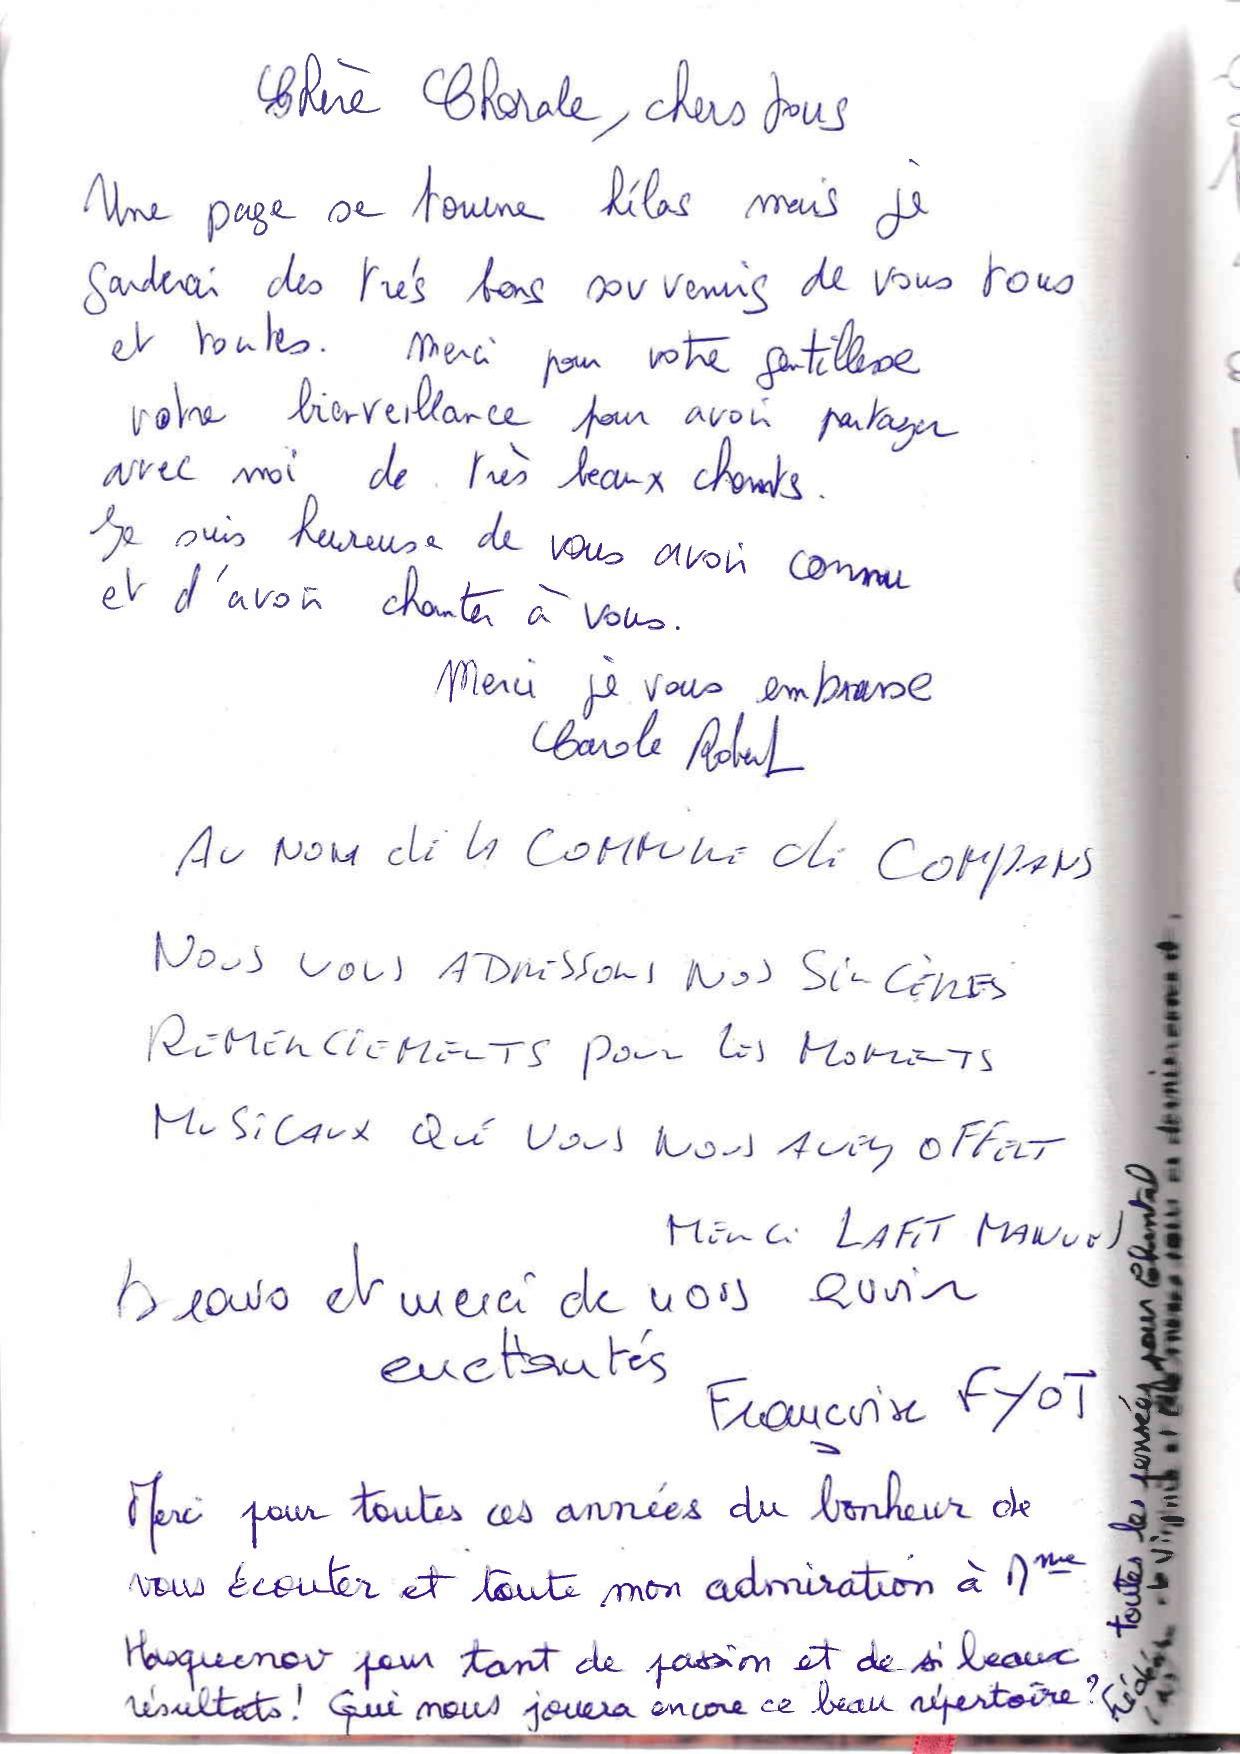 Chère Chorale, chers tous
Une page se tourne hélas mais je
garderai des très bons souvenirs de vous tous
et toutes. Merci pour votre gentillesse
votre bienveillance pour avoir partager
avec moi de très beaux chants.
Je suis heureuse de vous avoir connu
et d'avoir chanter à vous.
Merci je vous embrasse
Carole Robert
AU NOM de la COMMUNE de COMPANS
NOUS VOUS ADRESSONS NOS SINCÈRES
REMERCIEMENTS pour les MOMENTS
MUSICAUX QUE VOUS NOUS AVEZ OFFERT
MERCI LAFIT MANUEL
Bravo et merci de nous avoir
enchantés
Françoise FYOT
Merci pour toutes ces années du bonheur de
vous écouter et toute mon admiration à Mme
Hasquenov pour tant de passion et de si beaux
résultats! Qui nous jouera encore ce beau répertoire?
toutes les pensées pour Chantal